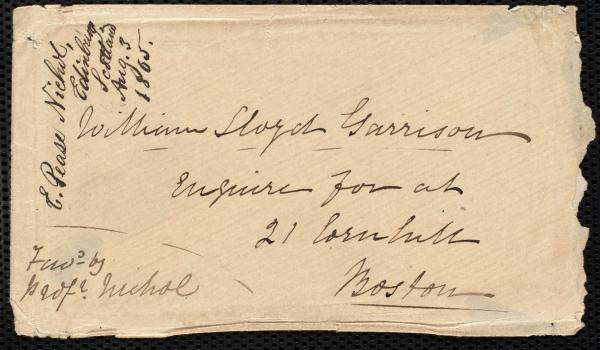 E. Pease Nichol,
Edinburgh
Scotland
Aug. 3
1865.
William Lloyd Garrison
Enquire for at
21 Cornhill
Boston
Favd by
Profr Nichol